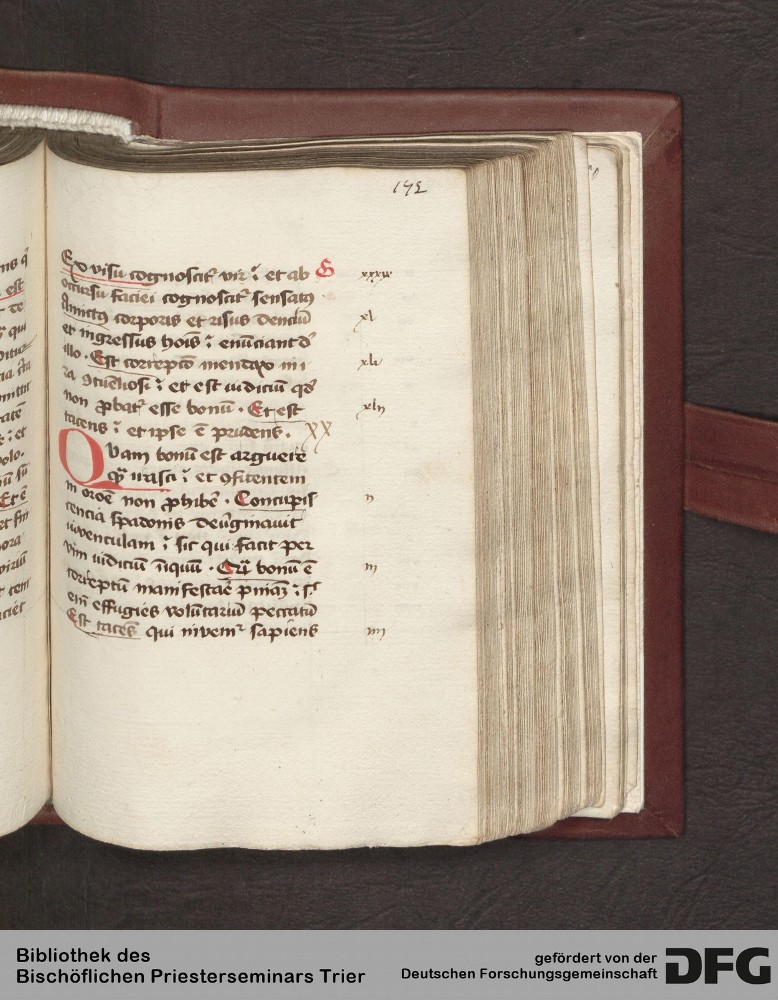 192
Ex visu cognoscit᷑ vir : et ab G xxxix
occursu faciei cognoscit᷑ sensatꝰ
Amictꝰ corporis et risus denciū xl
et ingressus hoīs : enūciant d̄
illo . Est correpcō mendax in i xli
ra ꝯtūeliosi : et est iudiciū qđ
non ꝓbat᷑ esse bonū . Et est xlii
tacens : et ipse ē prudens . XX
Quam bonū est arguere
qͣ irasci : et ꝯfitentem
in oroē non ꝓhibē . Concupis ii
cencia spadonis deūginauit
iuvenculam : sic qui facit per
vim iudiciū īiquū . Qͣ bonū ē iii
correptū manifestaē pniaꝫ : s
em̄ effugies volūtariū peccatū
Est tacēs qui invenit᷑ sapiens iiii
Bibliothek des
Bischöflichen Priesterseminars Trier
gefördert von der
Deutschen Forschungsgemeinschaft
DFG